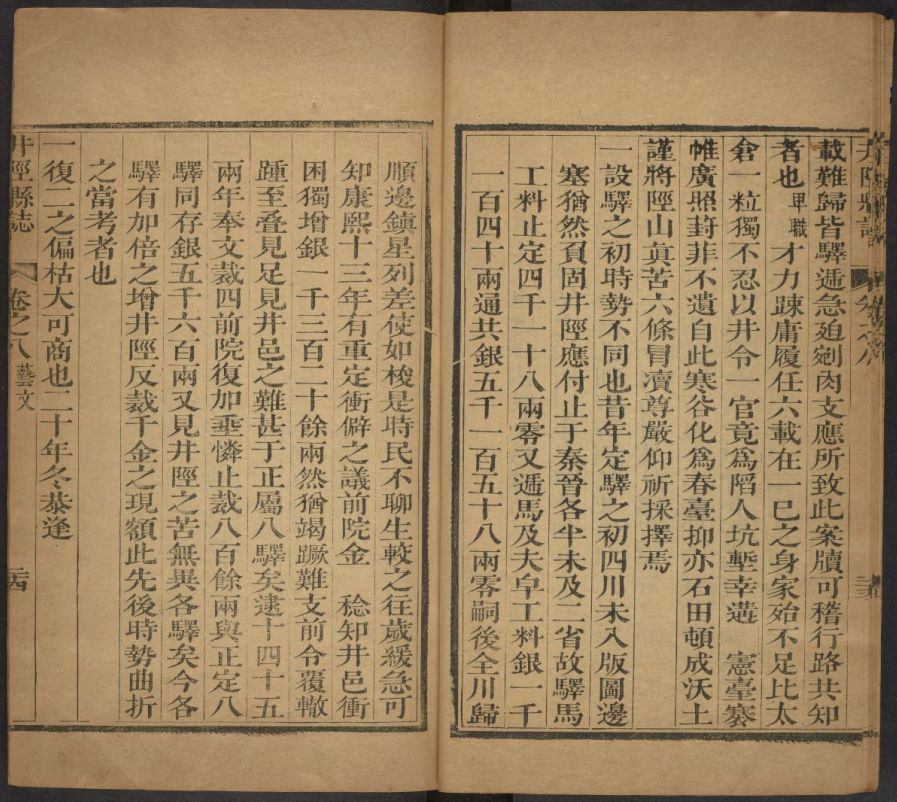 井陘縣誌 卷之八
載難歸皆驛遞急廹剜肉支應所致此案牘可稽行路共知
者也卑職才力踈庸履任六載在一巳之身家殆不足比太
倉一粒獨不忍以井令一官竟爲陷人坑塹幸遘 憲臺褰
帷廣照葑菲不遺自此寒谷化爲春臺抑亦石田頓成沃土
謹將陘山眞苦六條冒瀆尊嚴仰祈採擇焉
一設驛之初時勢不同也昔年定驛之初四川未入版圖邊
塞猶然負固井陘應付止于秦晉各半未及二省故驛馬
工料止定四千一十八兩零又遞馬及夫皁工料銀一千
一百四十兩通共銀五千一百五十八兩零嗣後全川歸
順邊鎮星列差使如梭是時民不聊生較之往歲緩急可
知康熙十三年有重定衝僻之議前院金 稔知井邑衝
困獨增銀一千三百二十餘兩然猶竭蹶難支前令覆轍
踵至叠見足見井邑之難甚于正屬八驛矣逮十四十五
兩年奉文裁四前院復加垂憐止裁八百餘兩與正定八
驛同存銀五千六百兩又見井陘之苦無異各驛矣今各
驛有加倍之增井陘反裁千金之現額此先後時勢曲折
之當考者也
一復二之偏枯大可商也二十年冬恭逢
井陘縣誌 卷之八藝文 二十四